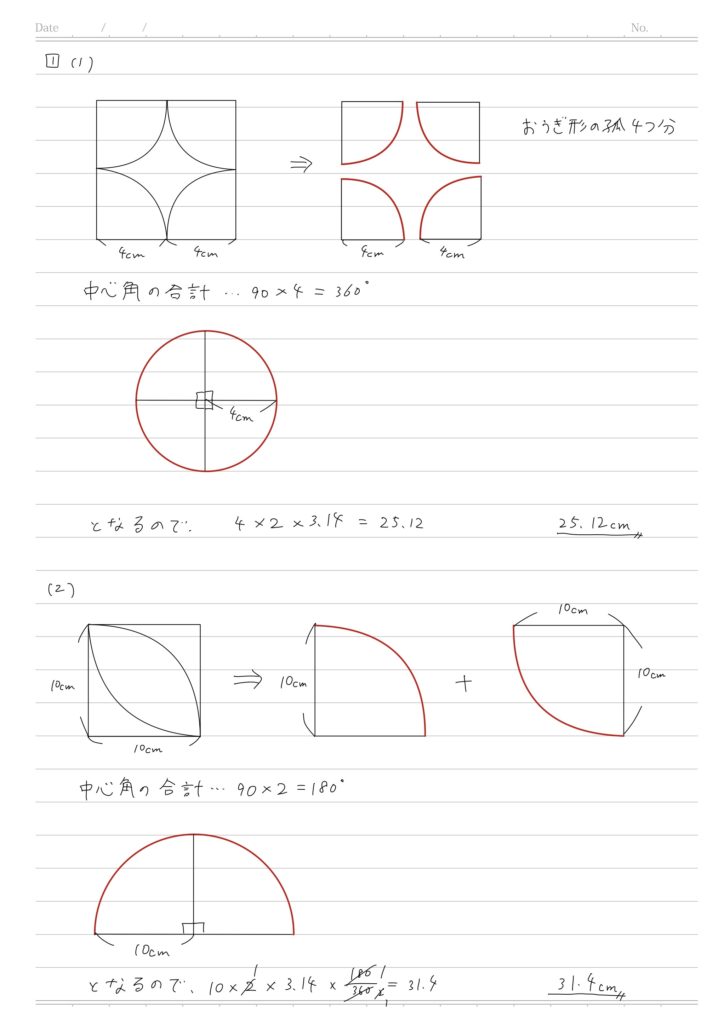 Date / / No.
1 (1)
おうぎ形の弧 4つ分
⇒
4cm 4cm 4cm 4cm
中心角の合計 … 90 × 4 = 360°
4cm
となるので、 4 × 2 × 3.14 = 25.12 25.12cm
(2)
10cm
⇒ 10cm + 10cm
10cm
10cm
中心角の合計 … 90 × 2 = 180°
10cm
となるので、 10 × 2 1 × 3.14 × 180 1 / 360 2 1 = 31.4 31.4cm